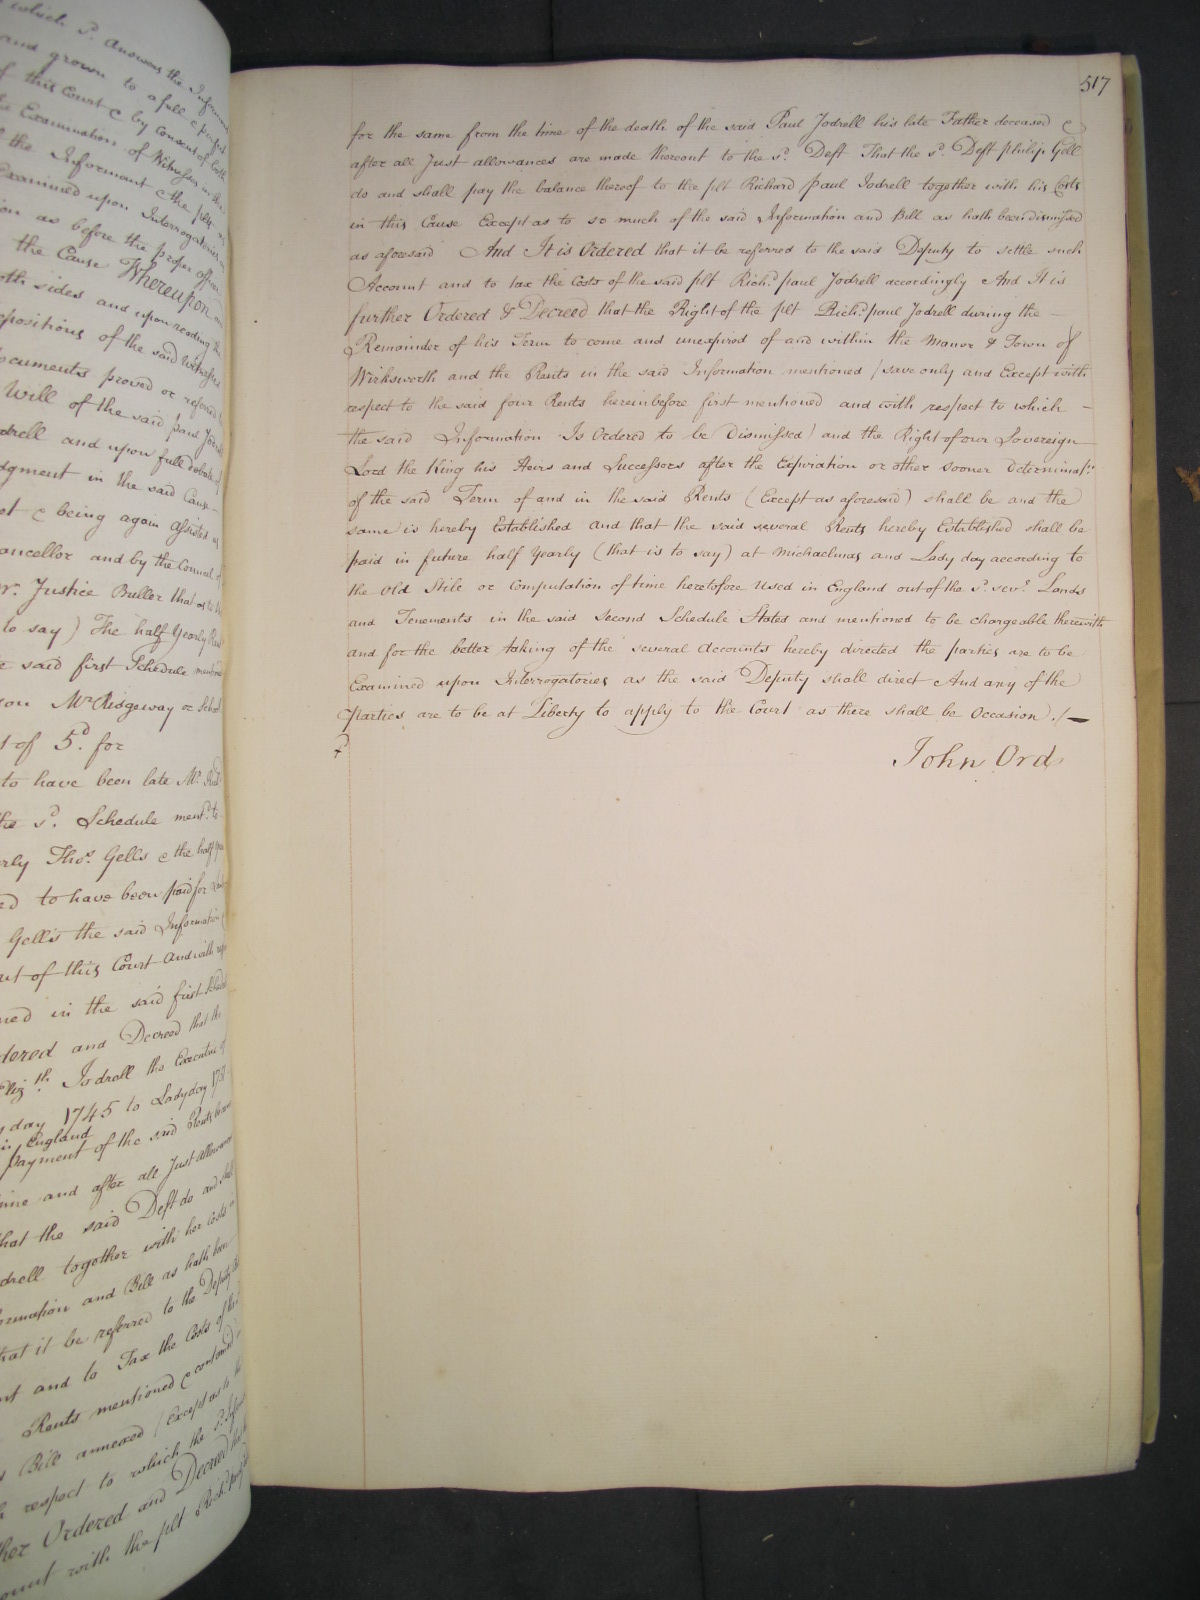 which sd. Answers the Informant
and grown to a full & perfect
of this Court & by Consent of both
the Examination of Witnesses in this
the Informant & the plt
Examined upon Interrogatories
as before the proper officer
the Cause Whereupon
both sides and upon reading the
depositions of the said Witnesses
documents proved or referred
Will of the said paul Jodrell
and upon full debate of
Judgment in the said Cause
& being again assisted
Chancellor and by the Counsel of
Mr. Justice Buller that as to
to say) The half Yearly Rent
said first Schedule mentioned
Mr Ridgeway or School
of 5d. for
to have been late Mr.
the sd. Schedule mentd. to
Thos. Gells & the half
to have been paid for
Gell's the said Information
out of this Court And with
in the said first Schedule
Ordered and Decreed that the
Elizth. Jodrell the Executrix of
day 1745 to Ladyday
in England
payment of the said Rents
time and after all Just allowances
that the said Deft do and shall
Jodrell together with her Costs in
Information and Bill as hath been
that it be referred to the Deputy
and to Tax the Costs of the
Rents mentioned & contained
Bill annexed (Except as to
respect to which the sd.
Ordered and Decreed that
with the plt Richd. paul
517
for the same from the time of the death of the said Paul Jodrell his late Father deceased &
after all Just allowances are made thereout to the sd. Deft That the sd. Deft philip Gell
do and shall pay the balance thereof to the plt Richard paul Jodrell together with his Costs
in this Cause Except as to so much of the said Information and Bill as hath been dismissed
as aforesaid And It is Ordered that it be referred to the said Deputy to settle such
Account and to tax the Costs of the said plt Richd. paul Jodrell accordingly And It is
further Ordered & Decreed that the Right of the plt Richd. paul Jodrell during the –
Remainder of his Term to come and unexpired of and within the Manor & Town of
Wirksworth and the Rents in the said Information mentioned (save only and Except with
respect to the said four Rents hereinbefore first mentioned and with respect to which –
the said Information Is Ordered to be Dismissed) and the Right of our Sovereign
Lord the King his Heirs and Successors after the Expiration or other sooner Determinatn.
of the said Term of and in the said Rents (Except as aforesaid) shall be and the
same is hereby Established and that the said several Rents hereby Established shall be
paid in future half Yearly (that is to say) at Michaelmas and Lady day according to
the Old Stile or Computation of time heretofore Used in England out of the sd. sevl. Lands
and Tenements in the said Second Schedule Stated and mentioned to be chargeable therewith
and for the better taking of the several Accounts hereby directed the parties are to be
Examined upon Interrogatories as the said Deputy shall direct And any of the
parties are to be at Liberty to apply to the Court as there shall be Occasion ./–
John Ord